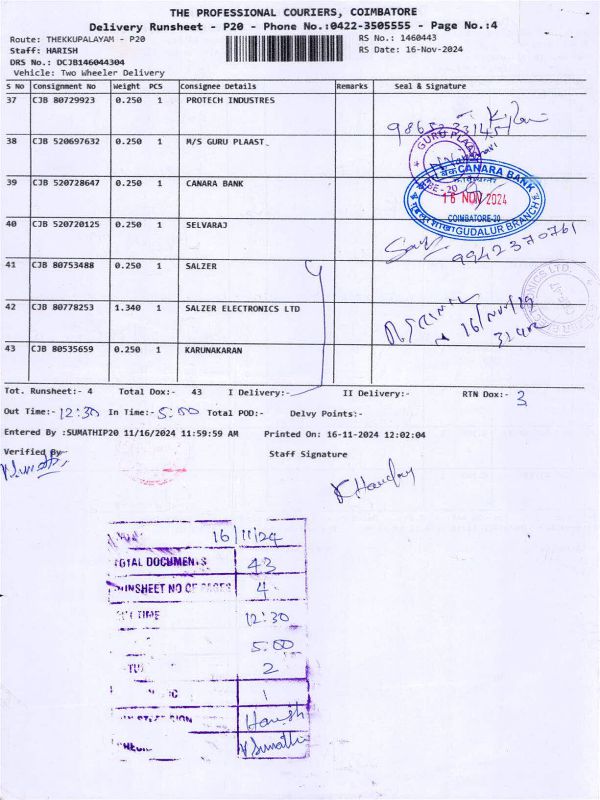 THE PROFESSIONAL COURIERS, COIMBATORE
Delivery Runsheet - P20 - Phone No.:0422-3505555 - Page No.:4
Route: THEKKUPALAYAM - P20 RS No.: 1460443
Staff: HARISH RS Date: 16-Nov-2024
DRS No.: DCJB146044304
Vehicle: Two Wheeler Delivery
S No Consignment No Weight PCS Consignee Details Remarks Seal & Signature
37 CJB 80729923 0.250 1 PROTECH INDUSTRES
38 CJB 520697632 0.250 1 M/S GURU PLAAST
GURU PLAAST
39 CJB 520728647 0.250 1 CANARA BANK
CANARA BANK
16 NOV 2024
COIMBATORE-20
GUDALUR BRANCH
40 CJB 520720125 0.250 1 SELVARAJ
9942370761
41 CJB 80753488 0.250 1 SALZER
42 CJB 80778253 1.340 1 SALZER ELECTRONICS LTD
43 CJB 80535659 0.250 1 KARUNAKARAN
Tot. Runsheet:- 4 Total Dox:- 43 I Delivery:- II Delivery:- RTN Dox:- 3
Out Time:- 12:30 In Time:- 5:00 Total POD:- Delvy Points:-
Entered By :SUMATHIP20 11/16/2024 11:59:59 AM Printed On: 16-11-2024 12:02:04
Verified By Staff Signature
V Sumathi
16/11/24
TOTAL DOCUMENTS 43
RUNSHEET NO OF PAGES 4
OUT TIME 12:30
5:00
2
1
Harish
V Sumathi